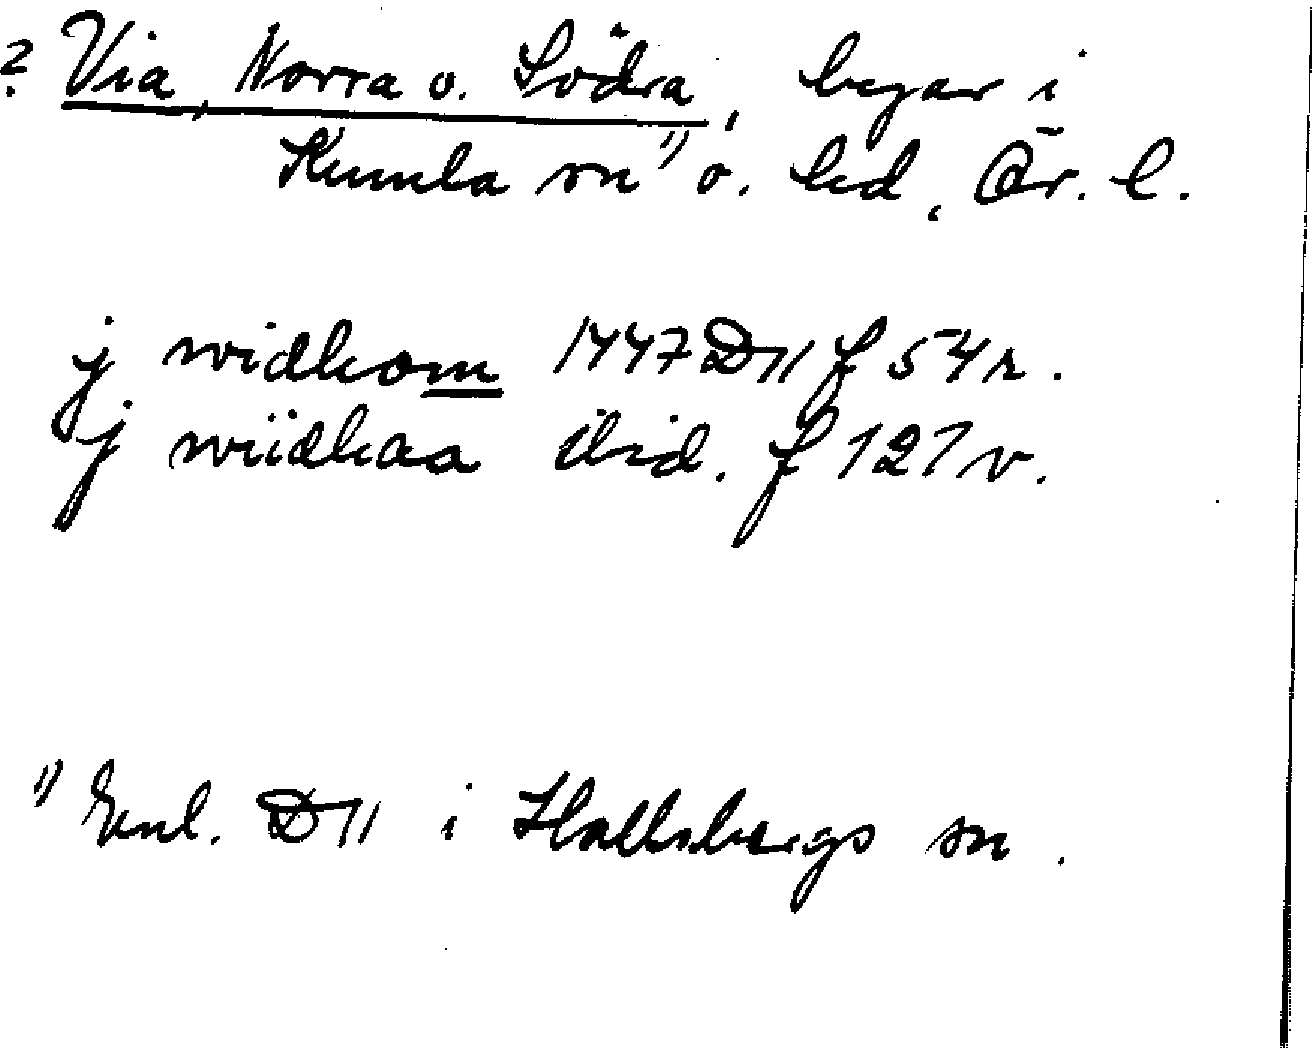 ? Via, Norra o. Södra, byar i
Kumla sn 1) o. hd, Ör. l.
j widhom 1447 D11 f 54r.
j wiidhaa ibid. f 127v.
1) Enl. D11 i Hallsbergs sn.